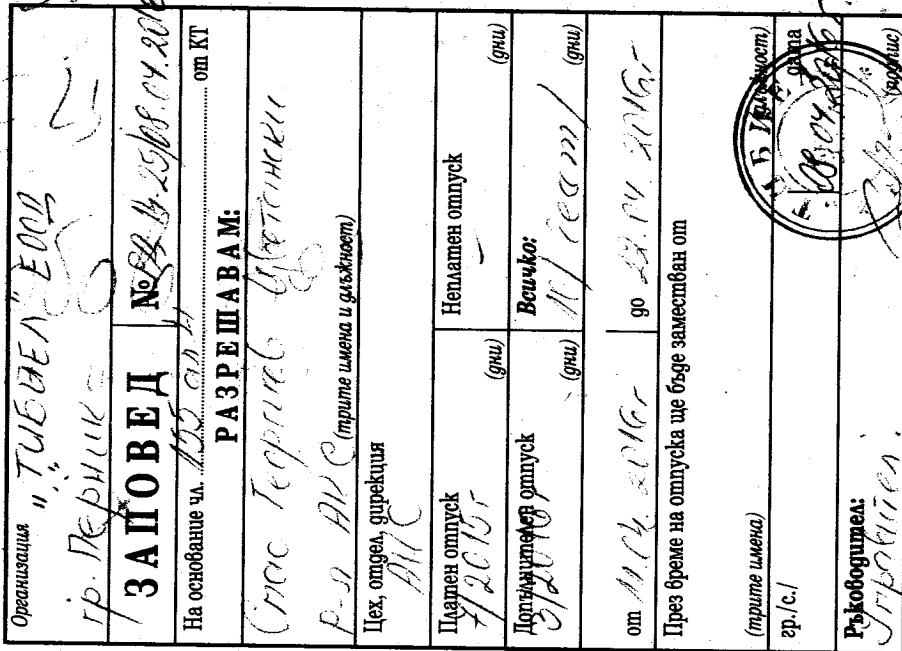 Организация „ТИБИЕЛ" ЕООД
гр. Перник
ЗАПОВЕД № 25/08.04.2016
На основание чл. 155 ал. 4 от КТ
РАЗРЕШАВАМ:
Спас Георгиев Цветански
р-л АИС (трите имена и длъжност)
Цех, отдел, дирекция
АИС
Платен отпуск Неплатен отпуск
7/2015г (дни) – (дни)
Допълнителен отпуск Всичко:
3/2016г (дни) 10/десет/ (дни)
от 11.04.2016г до 22.04.2016г
През време на отпуска ще бъде заместван от
(трите имена) (длъжност)
гр./с./ 08.04.2016 дата
Ръководител:
Управител. (подпис)